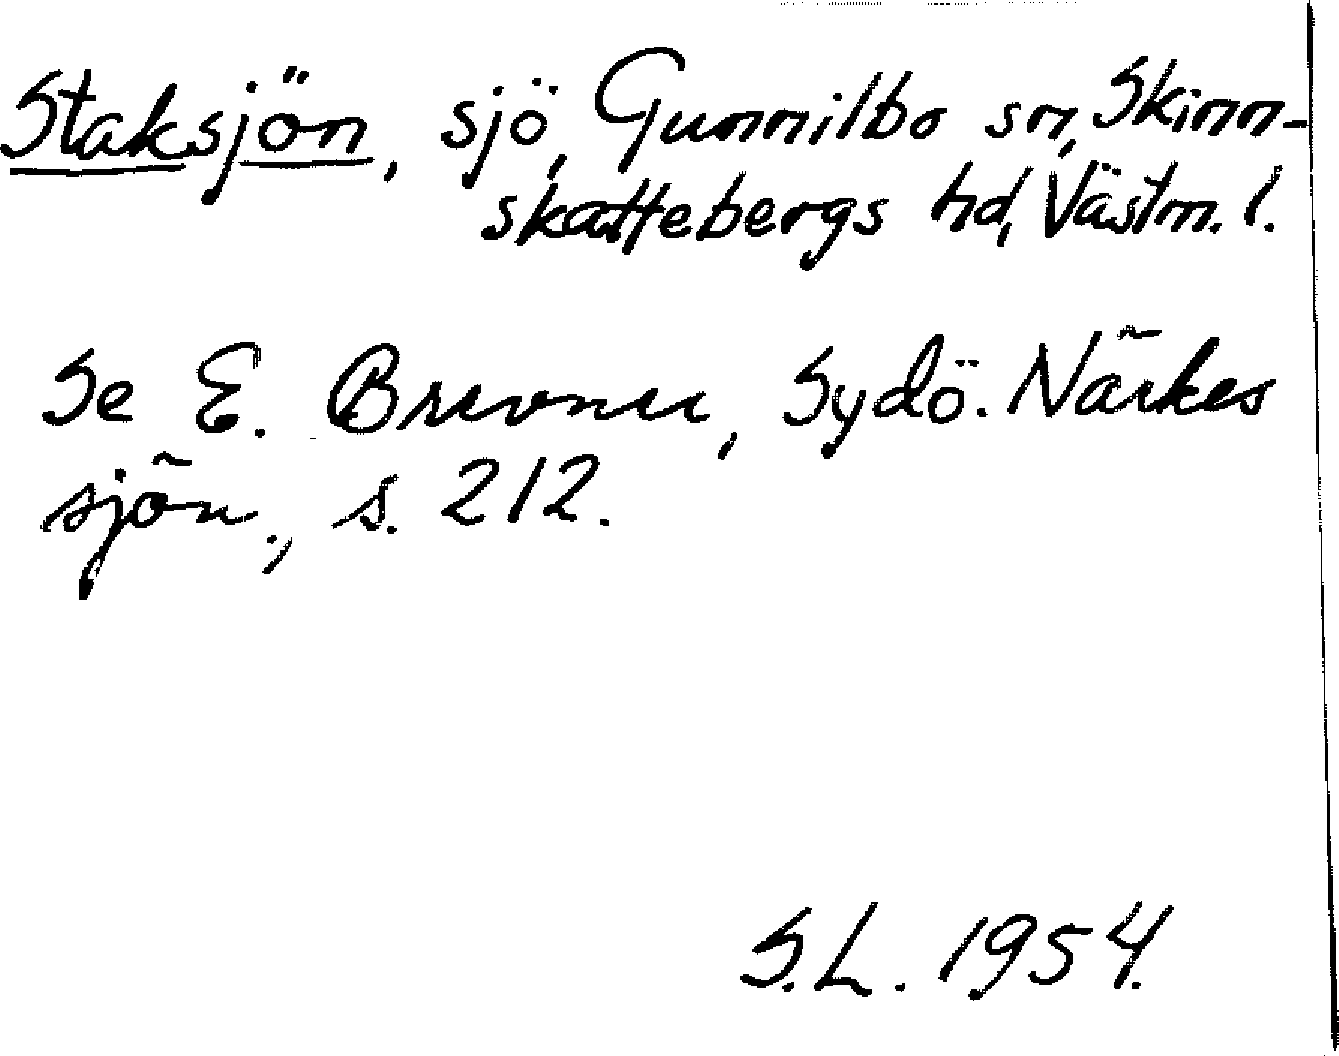 Staksjön, sjö, Gunnilbo sn, Skinn-
skattebergs hd, Västm. l.
Se E. Brevner, Sydö. Närkes
sjön., s. 212.
S.L. 1954.